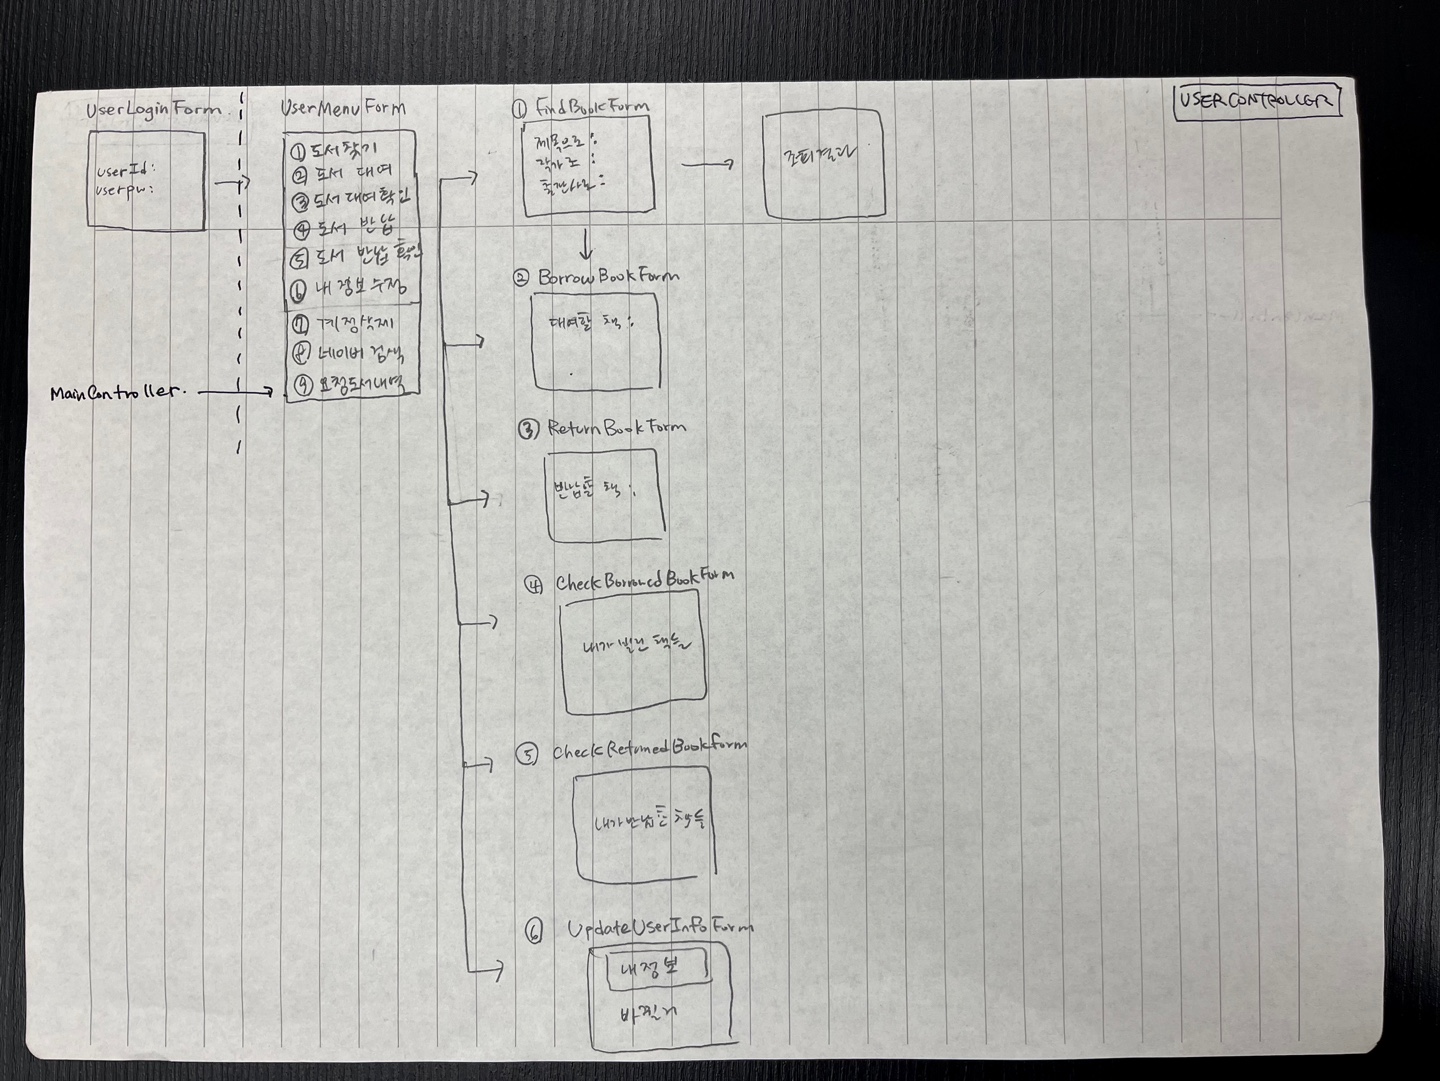 USERCONTROLLER
UserLoginForm
userId:
userpw:
MainController.
UserMenuForm
① 도서찾기
② 도서 대여
③ 도서대여확인
④ 도서 반납
⑤ 도서 반납 확인
⑥ 내 정보수정
⑦ 계정삭제
⑧ 네이버 검색
⑨ 요청도서내역
① FindBookForm
제목으로:
작가로 :
출판사로:
조회결과
② BorrowBookForm
대여할 책 :
③ ReturnBookForm
반납할 책 :
④ CheckBorrowedBookForm
내가 빌린 책들
⑤ CheckReturnedBookForm
내가 반납한 책들
⑥ UpdateUserInfoForm
내정보